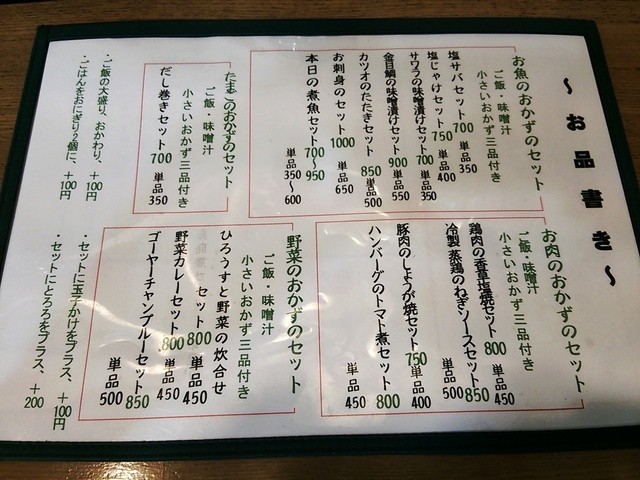 ～お品書き～
お魚のおかずのセット
ご飯・味噌汁
小さいおかず三品付き
塩サバセット700 単品350
塩じゃけセット750 単品400
サワラの味噌漬けセット700 単品350
金目鯛の味噌漬けセット900 単品550
カツオのたたきセット850 単品500
お刺身のセット1000 単品650
本日の煮魚セット700～950 単品350～600
たまごのおかずのセット
ご飯・味噌汁
小さいおかず三品付き
だし巻きセット700 単品350
・ご飯の大盛り、おかわり、+100円
・ごはんをおにぎり2個に、+100円
お肉のおかずのセット
ご飯・味噌汁
小さいおかず三品付き
鶏肉の香草塩焼セット800 単品450
冷製 蒸鶏のねぎソースセット850 単品500
豚肉のしょうが焼セット750 単品400
ハンバーグのトマト煮セット800 単品450
野菜のおかずのセット
ご飯・味噌汁
小さいおかず三品付き
ひろうすと野菜の炊合せ
セット800 単品450
野菜カレーセット800 単品450
ゴーヤーチャンプルーセット850 単品500
・セットに玉子かけをプラス、+100円
・セットにとろろをプラス、+200